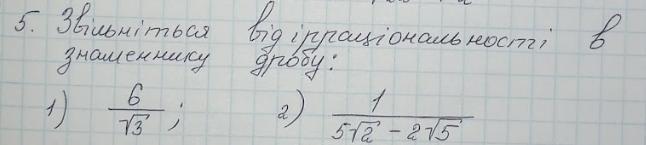 5. Звільніться від ірраціональності в
знаменнику дробу:
1) 6/√3 ; 2) 1/(5√2 - 2√5)